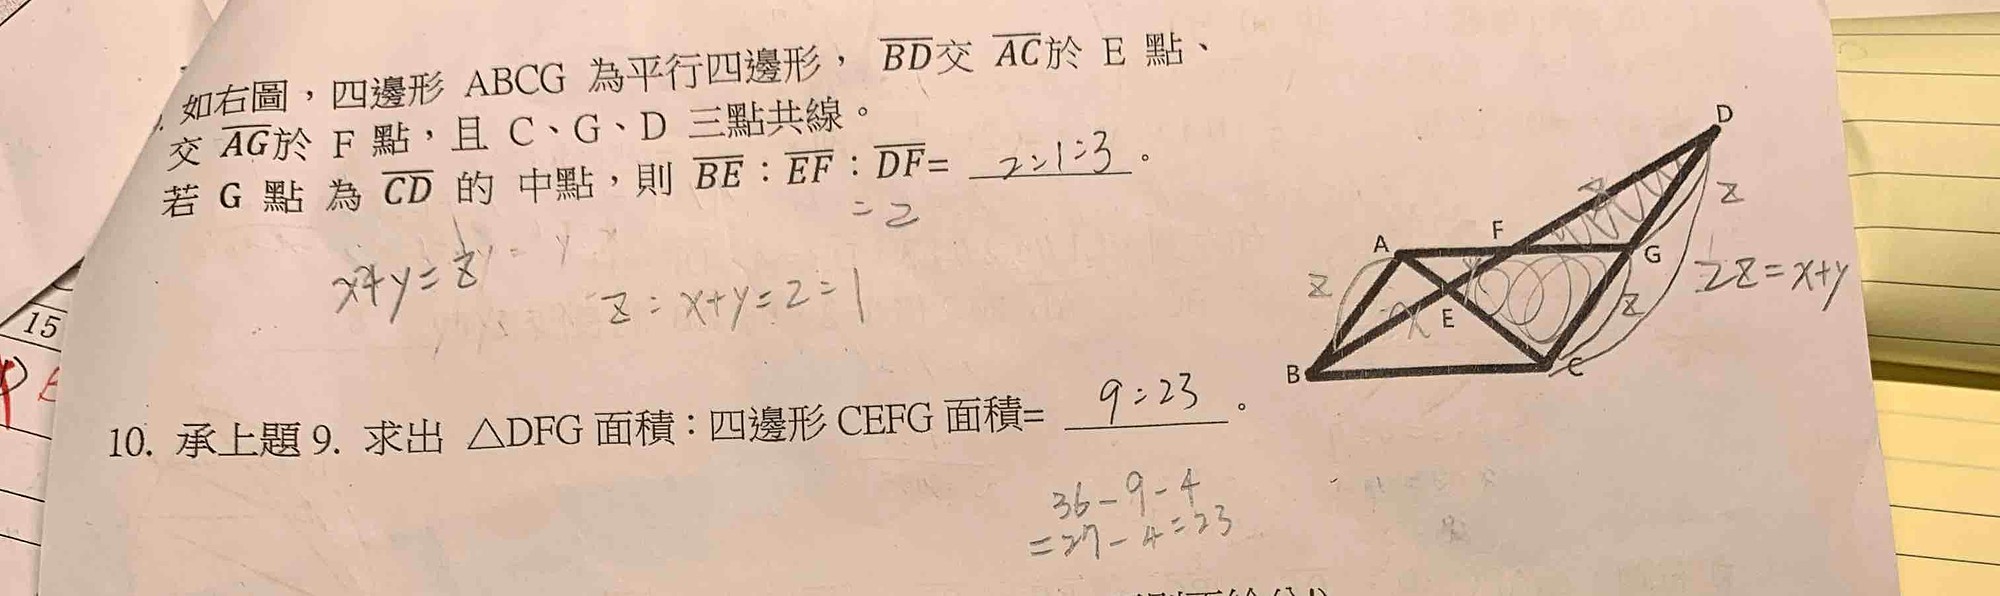 如右圖，四邊形 ABCG 為平行四邊形， BD交 AC於 E 點、
交 AG於 F 點，且 C、G、D 三點共線。
若 G 點 為 CD 的 中點，則 BE：EF：DF= 2:1:3 。
= 2
x+y=z
z = x+y = 2 = 1
D
F
A
G
E
B
C
z
z
z
z
x
2z=x+y
15
10. 承上題 9. 求出 △DFG 面積：四邊形 CEFG 面積= 9:23 。
36-9-4
=27-4=23